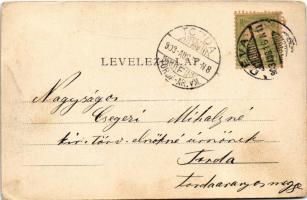 TORDA
LEVELEZ LAP
Nagyságos
Csegezi Mihályné
kir. törv. elnökné úrnőnek
Torda
Tordaaranyos megye